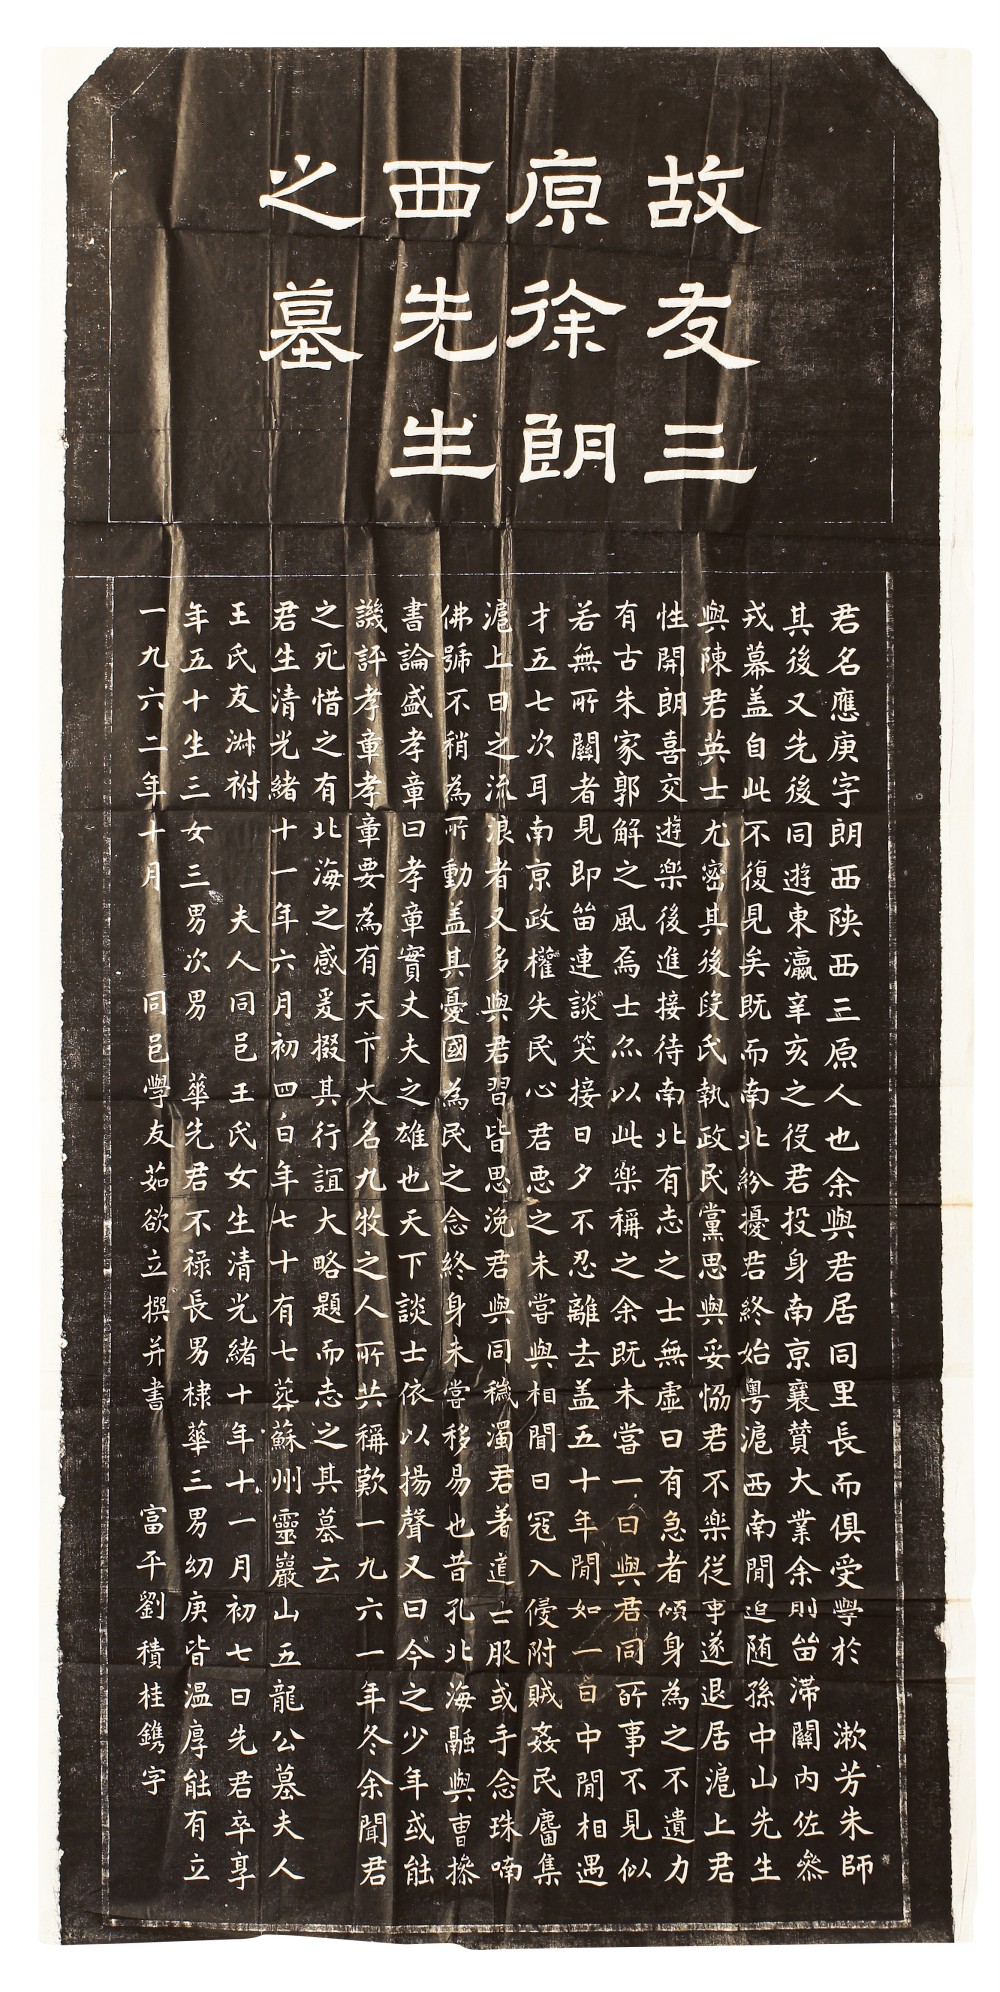 故友三
原徐朗
西先生
之墓
君名應庚字朗西陝西三原人也余與君居同里長而俱受學於 漱芳朱師
其後又先後同遊東瀛辛亥之役君投身南京襄贊大業余則畱滯關內佐叅
戎幕盖自此不復見矣既而南北紛擾君終始粵滬西南閒追随孫中山先生
與陳君英士尤密其後段氏執政民黨思與妥恊君不樂従事遂退居滬上君
性開朗喜交遊樂後進接待南北有志之士無虛日有急者傾身為之不遺力
有古朱家郭解之風焉士尒以此樂稱之余既未嘗一日與君同所事不見似
若無所關者見即畱連談笑接日夕不忍離去盖五十年閒如一日中閒相遇
才五七次耳南京政權失民心君惡之未嘗與相聞日冦入侵附賊姦民麕集
滬上日之流浪者又多與君習皆思浼君與同穢濁君着道士服或手念珠喃
佛號不稍為所動盖其憂國為民之念終身未嘗移易也昔孔北海融與曹操
書論盛孝章曰孝章實丈夫之雄也天下談士依以揚聲又曰今之少年或能
譏評孝章孝章要為有天下大名九牧之人所共稱歎一九六一年冬余聞君
之死惜之有北海之感爰掇其行誼大略題而志之其墓云
君生清光緒十一年六月初四日年七十有七葬蘇州靈巖山五龍公墓夫人
王氏友淋祔 夫人同邑王氏女生清光緒十年十一月初七日先君卒享
年五十生三女三男次男 華先君不禄長男棣華三男幼庚皆温厚能有立
一九六二年十月 同邑學友茹欲立撰并書 富平劉積桂鐫字